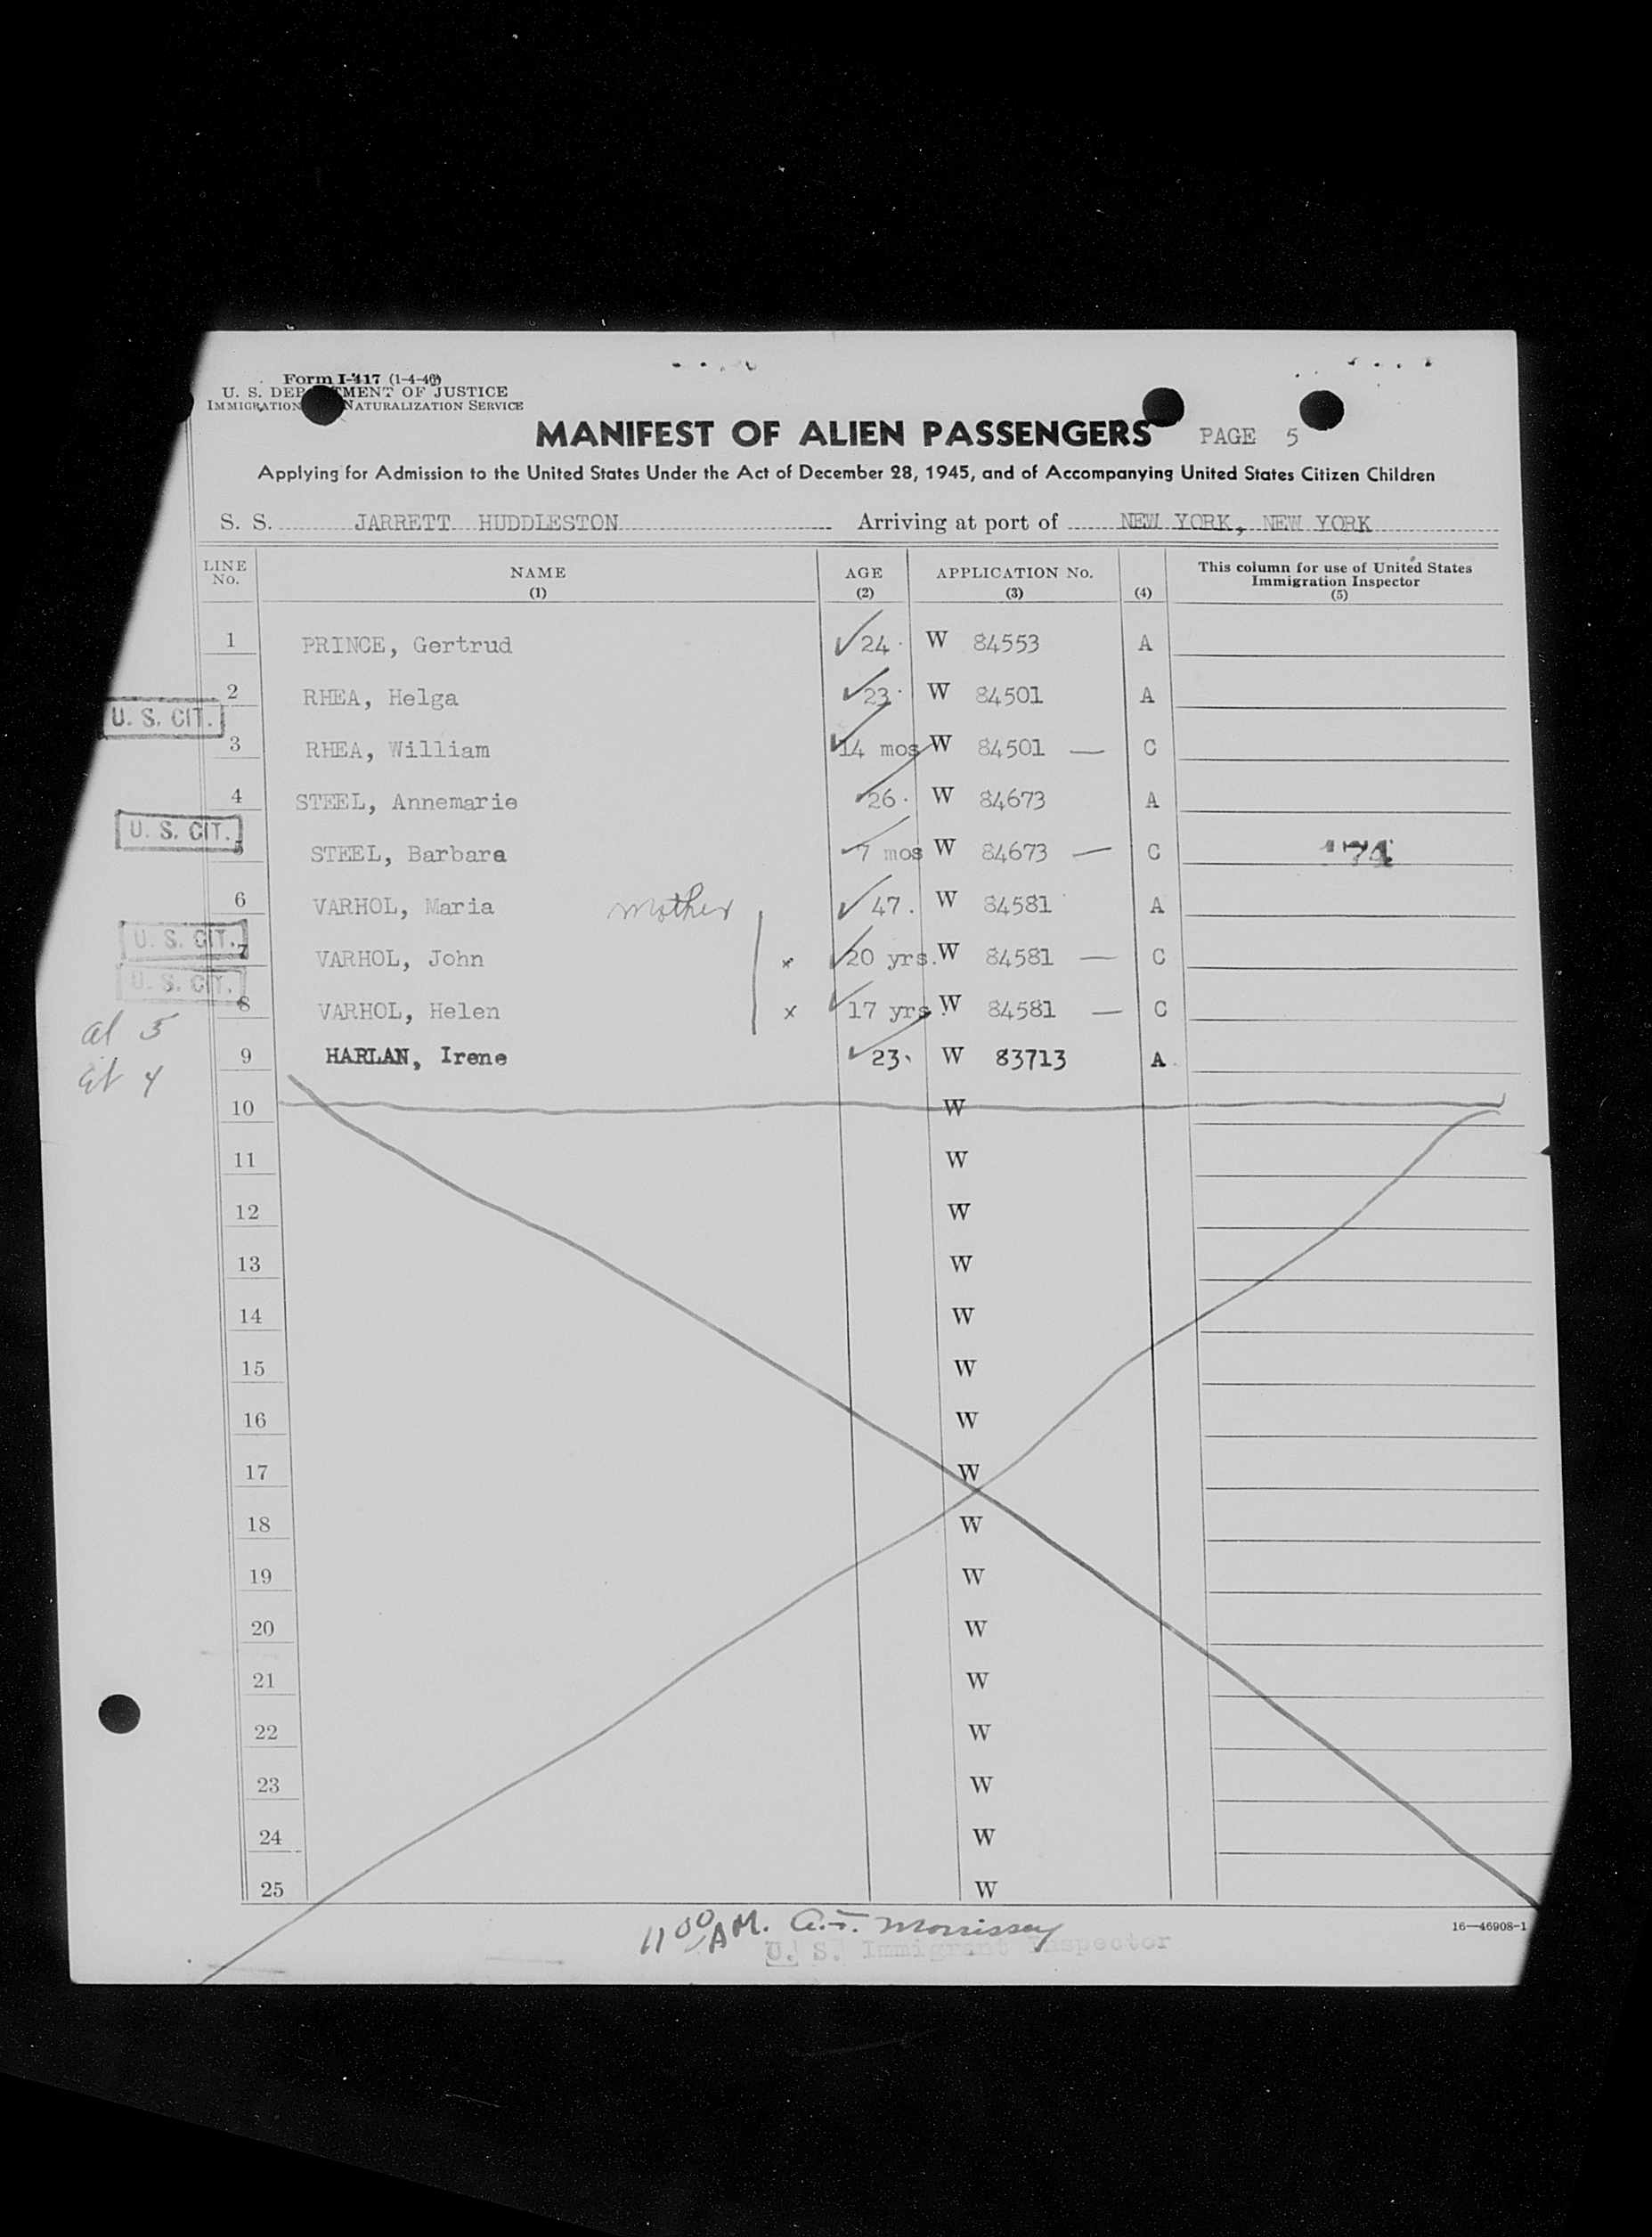 Form I-417 (1-4-46)
U. S. DEP TMENT OF JUSTICE
IMMIGRATION NATURALIZATION SERVICE
MANIFEST OF ALIEN PASSENGERS PAGE 5
Applying for Admission to the United States Under the Act of December 28, 1945, and of Accompanying United States Citizen Children
S. S. JARRETT HUDDLESTON Arriving at port of NEW YORK, NEW YORK
LINE No. NAME (1) AGE (2) APPLICATION No. (3) (4) This column for use of United States Immigration Inspector (5)
1 PRINCE, Gertrud 24 W 84553 A
2 RHEA, Helga 23 W 84501 A
U. S. CIT.
3 RHEA, William 14 mos W 84501 — C
4 STEEL, Annemarie 26 W 84673 A
U. S. CIT.
5 STEEL, Barbara 7 mos W 84673 — C 174
6 VARHOL, Maria mother 47 W 84581 A
U. S. CIT.
7 VARHOL, John x 20 yrs. W 84581 — C
U. S. CIT.
8 VARHOL, Helen x 17 yrs. W 84581 — C
al 5
9 HARLAN, Irene 23 W 83713 A
cit 4
10 W
11 W
12 W
13 W
14 W
15 W
16 W
17 W
18 W
19 W
20 W
21 W
22 W
23 W
24 W
25 W
11 00 AM. A.F. Morrissey
U. S. Immigrant Inspector
16—46908-1